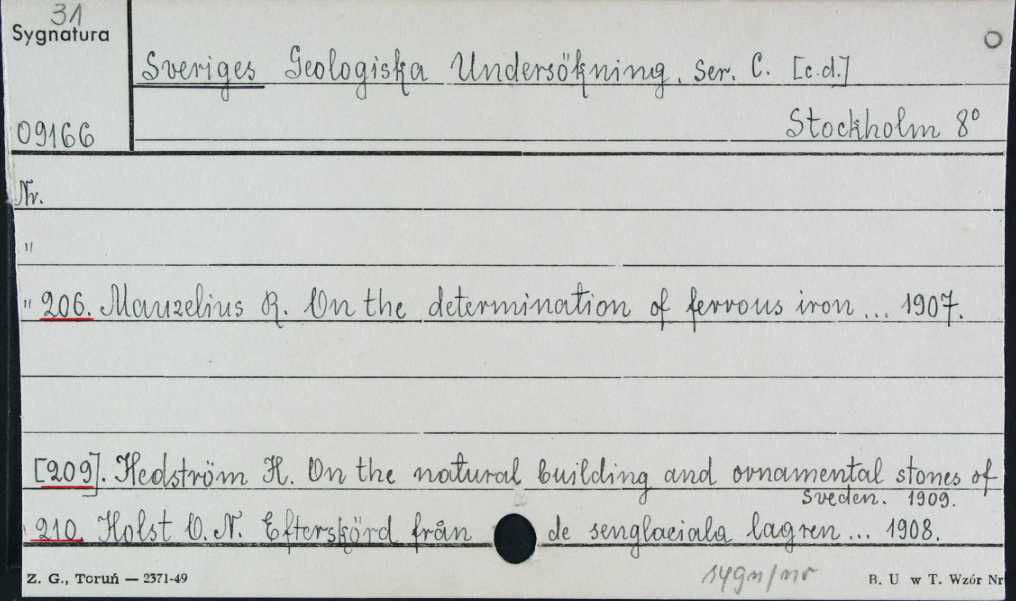 31
Sygnatura
Sveriges Geologiska Undersökning. Ser. C. [c.d.]
09166
Stockholm 8°
Nr.
"
" 206. Mauzelius R. On the determination of ferrous iron ... 1907.
[209]. Hedström H. On the natural building and ornamental stones of
Sveden. 1909.
210. Holst O. N. Efterskörd från de senglaciala lagren ... 1908.
Z. G., Toruń — 2371-49
sygn/nr
B. U w T. Wzór Nr